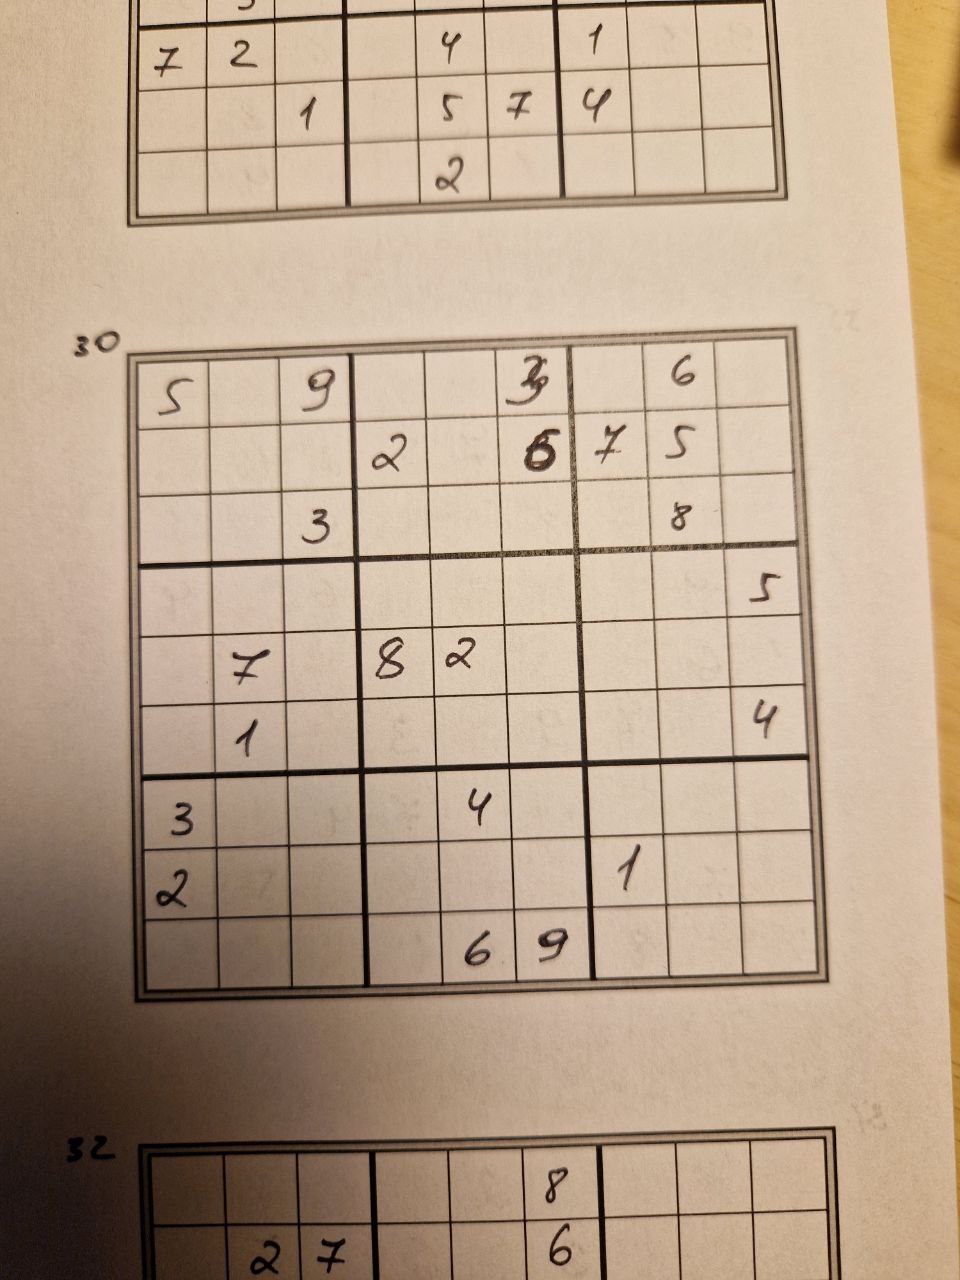 7 2 4 1
1 5 7 4
2
30
5 9 3 6
2 6 7 5
3 8
5
7 8 2
1 4
3 4
2 1
6 9
32
8
2 7 6